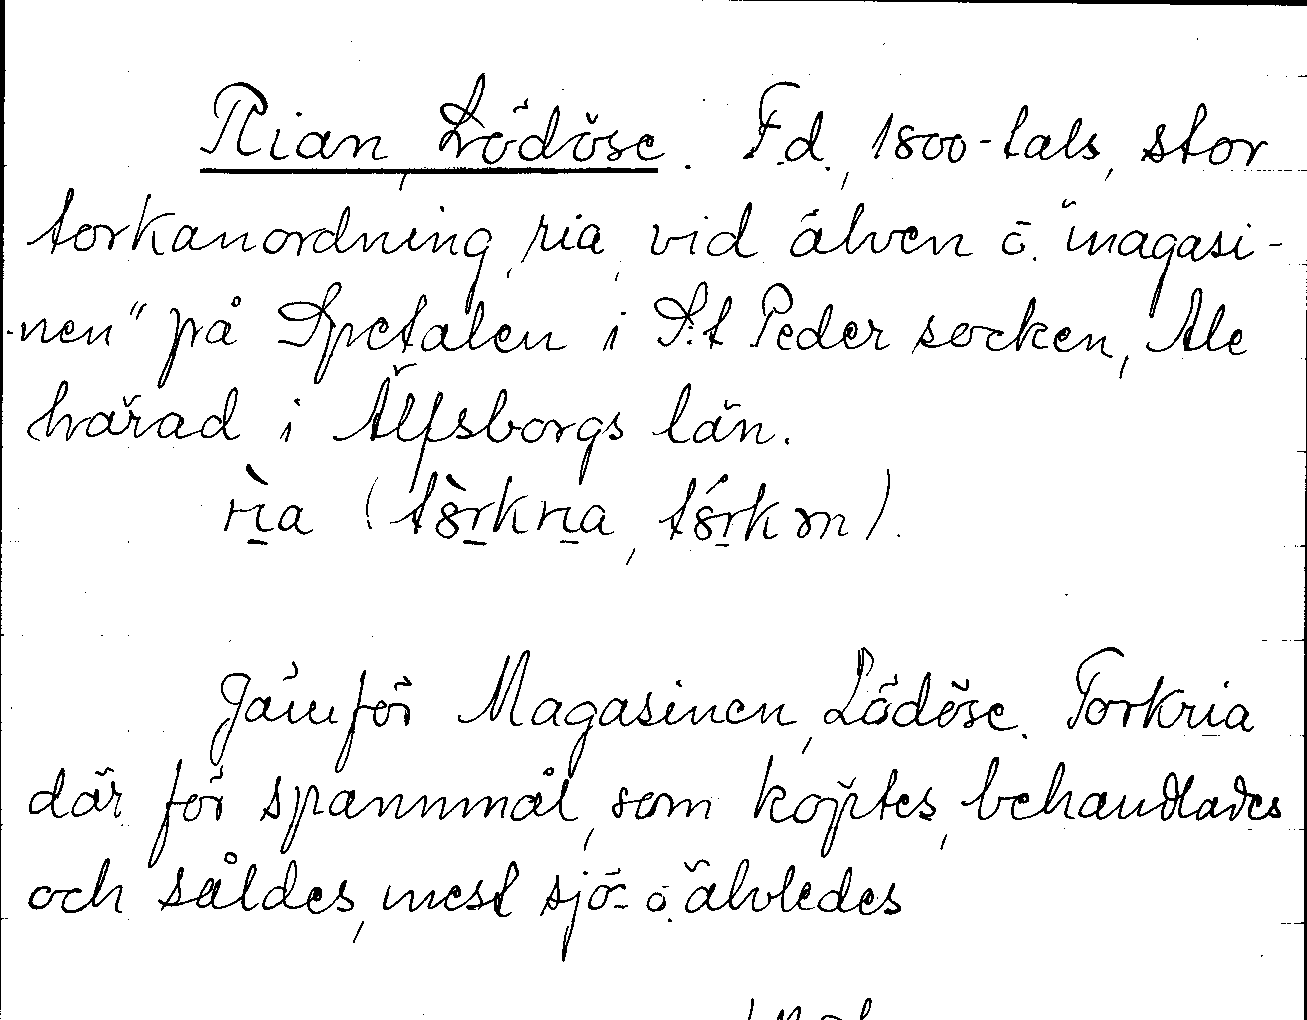 Rian, Lödöse. F.d., 1800-tals, stor
torkanordning, ria, vid älven ö. "magasi-
nen" på Spetalen i S:t Peder socken, Ale
härad i Älfsborgs län.
rìa (tòrkria, tórkon).
Jämför Magasinen, Lödöse. Torkria
där för spannmål, som köptes, behandlades
och såldes, mest sjö- o. älvledes